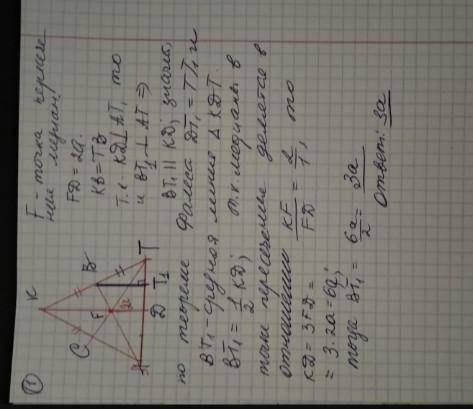 ①
K
C
B
F
2a
A
D
T₁
T
F - точка пересече
ния медиан.
FD = 2a.
KB = TB
Т.к KD⊥AT, то
и BT₁ ⊥ AT ⇒
BT₁ || KD; значит,
по теореме Фалеса DT₁ = TT₁ и
BT₁ - средняя линия Δ KDT.
BT₁ = 1/2 KD; т.к. медианы в
точке пересечения делятся в
отношении KF/FD = 2/1, то
KD = 3FD =
= 3·2a = 6a;
тогда BT₁ = 6a/2 = 3a
Ответ: 3a